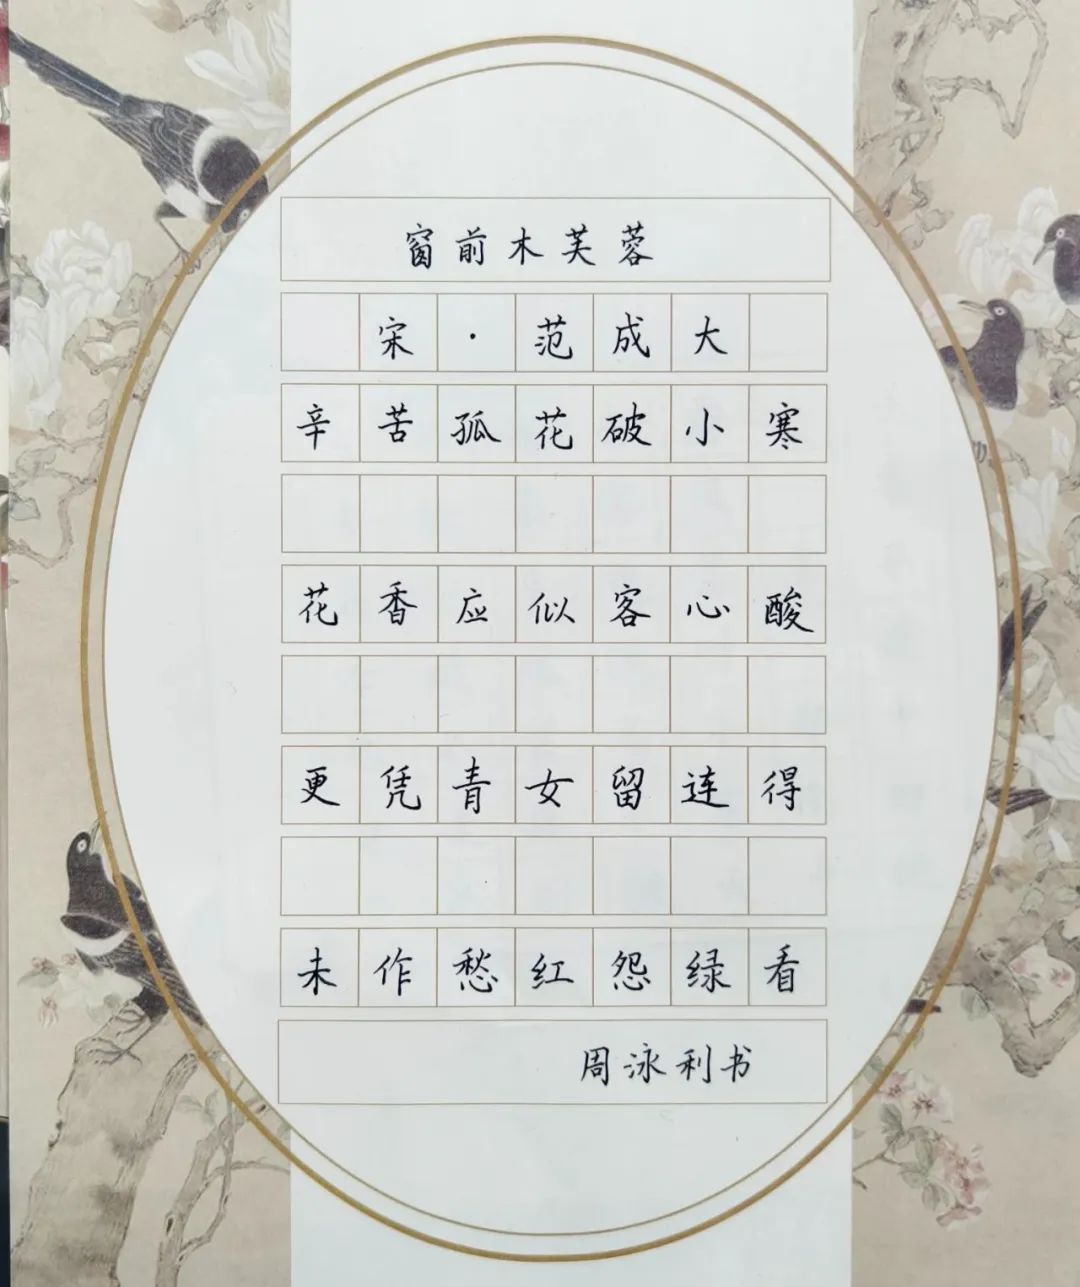 窗前木芙蓉
宋·范成大
辛苦孤花破小寒
花香应似客心酸
更凭青女留连得
未作愁红怨绿看
周泳利书